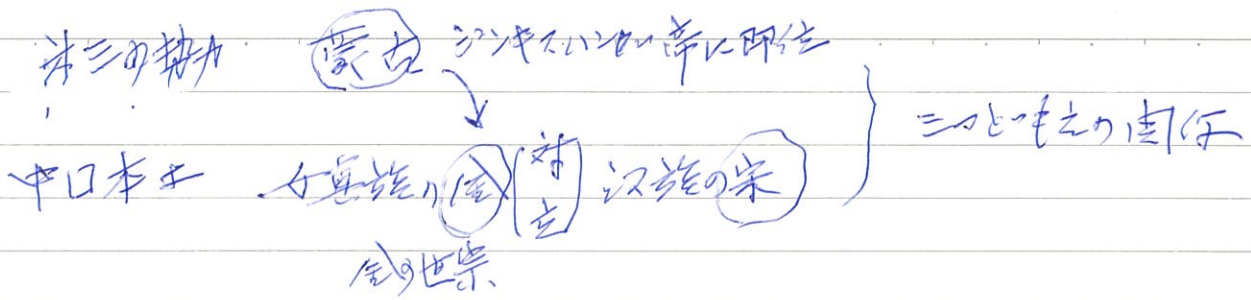 第三の勢力 蒙古 ジンギスハンが帝に即位
中国本土 女真族の金 対立 漢族の宋
三つどもえの関係
金の世宗